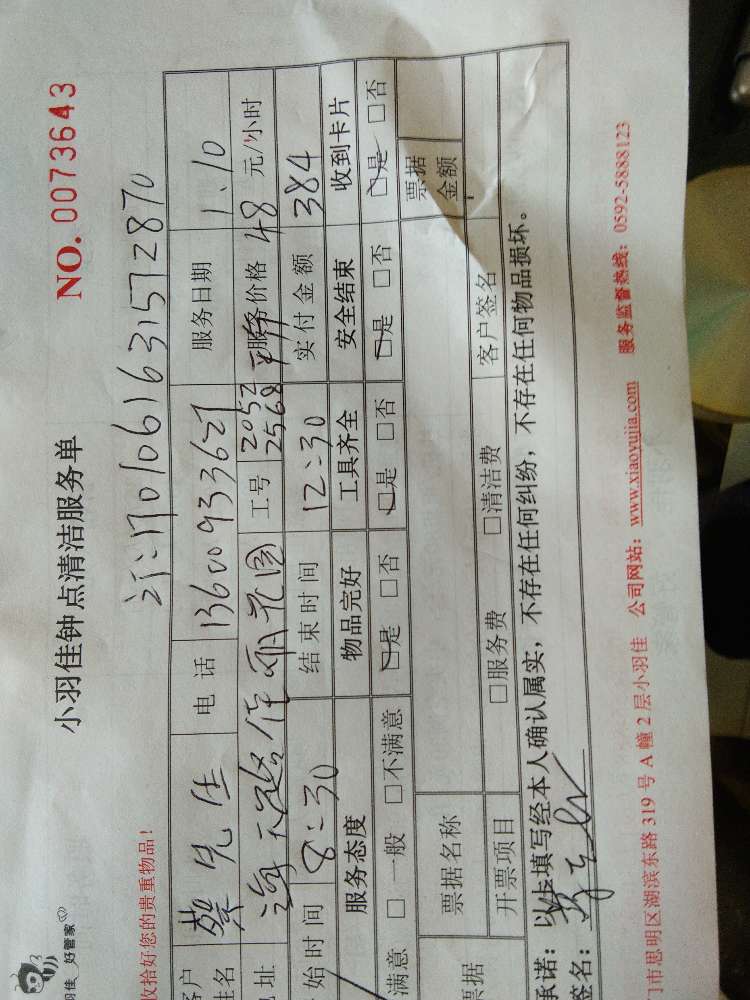 羽佳 好管家
小羽佳钟点清洁服务单
NO. 0073643
收拾好您的贵重物品!
1701061631572870
客户 姓名 蔡先生 电话 13600933627 服务日期 1.10
地址 工号 2052 2568 服务价格 48 元/小时
始时间 8:30 结束时间 12:30 实付金额 384
服务态度 物品完好 工具齐全 安全结束 收到卡片
满意 □一般 □不满意 □是 □否 □是 □否 □是 □否 □是 □否
票据 票据名称 票据金额
开票项目 □服务费 □清洁费 客户签名
承诺:以上填写经本人确认属实,不存在任何纠纷,不存在任何物品损坏。
签名:
门市思明区湖滨东路 319 号 A 幢 2 层小羽佳 公司网站:www.xiaoyujia.com 服务监督热线:0592-5888123